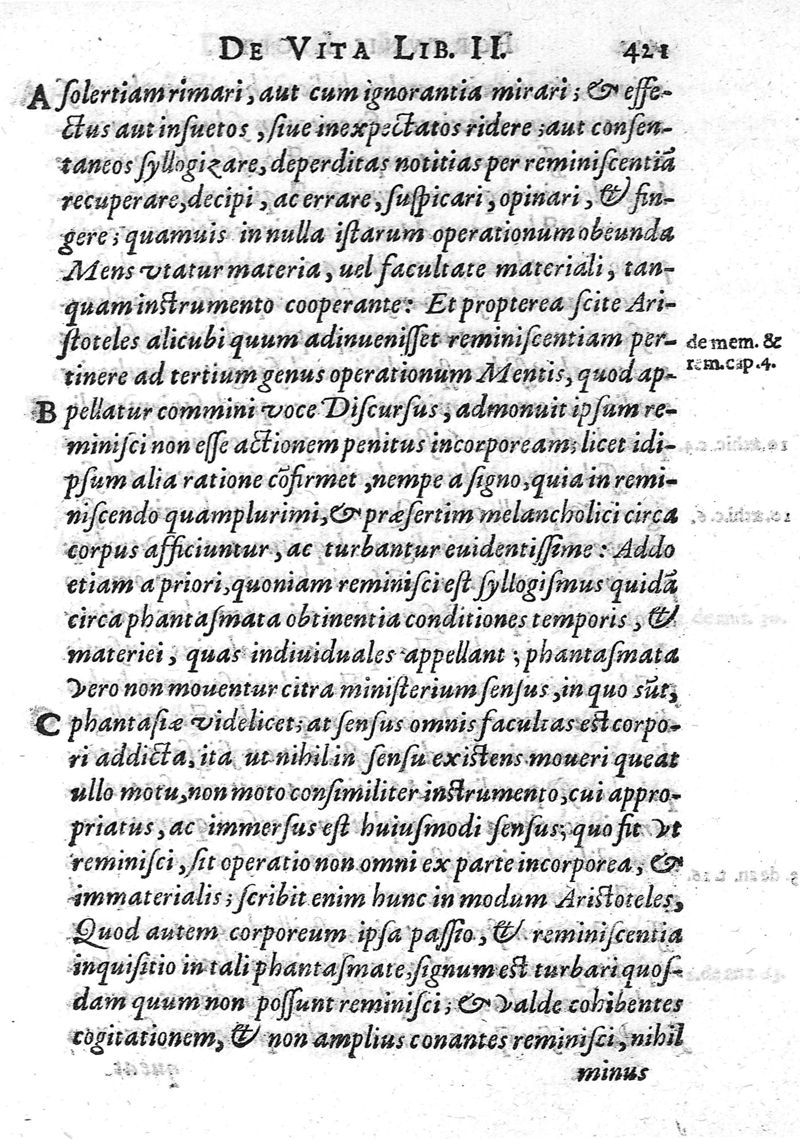 DE VITA LIB. II. 421
A ſolertiam rimari, aut cum ignorantia mirari; & effe-
ctus aut inſuetos, ſiue inexpectatos ridere; aut conſen-
taneos ſyllogizare, deperditas notitias per reminiſcentiã
recuperare, decipi, ac errare, ſuſpicari, opinari, & fin-
gere; quamuis in nulla iſtarum operationum obeunda
Mens vtatur materia, uel facultate materiali, tan-
quam inſtrumento cooperante: Et propterea ſcite Ari-
ſtoteles alicubi quum adinueniſſet reminiſcentiam per-
de mem. &
rem. cap. 4.
tinere ad tertium genus operationum Mentis, quod ap-
B pellatur commini voce Diſcurſus, admonuit ipſum re-
miniſci non eſſe actionem penitus incorpoream; licet idi-
pſum alia ratione cõfirmet, nempe a ſigno, quia in remi-
niſcendo quamplurimi, & præſertim melancholici circa
corpus afficiuntur, ac turbantur euidentiſſime: Addo
etiam a priori, quoniam reminiſci eſt ſyllogiſmus quidã
circa phantaſmata obtinentia conditiones temporis, &
materiei, quas indiuiduales appellant; phantaſmata
vero non mouentur citra miniſterium ſenſus, in quo sũt,
C phantaſiæ videlicet; at ſenſus omnis facultas eſt corpo-
ri addicta, ita ut nihil in ſenſu exiſtens moueri queat
ullo motu, non moto conſimiliter inſtrumento, cui appro-
priatus, ac immerſus eſt huiuſmodi ſenſus; quo fit vt
reminiſci, ſit operatio non omni ex parte incorporea, &
immaterialis; ſcribit enim hunc in modum Ariſtoteles,
Quod autem corporeum ipſa paſſio, & reminiſcentia
inquiſitio in tali phantaſmate, ſignum eſt turbari quoſ-
dam quum non poſſunt reminiſci; & valde cohibentes
cogitationem, & non amplius conantes reminiſci, nihil
minus